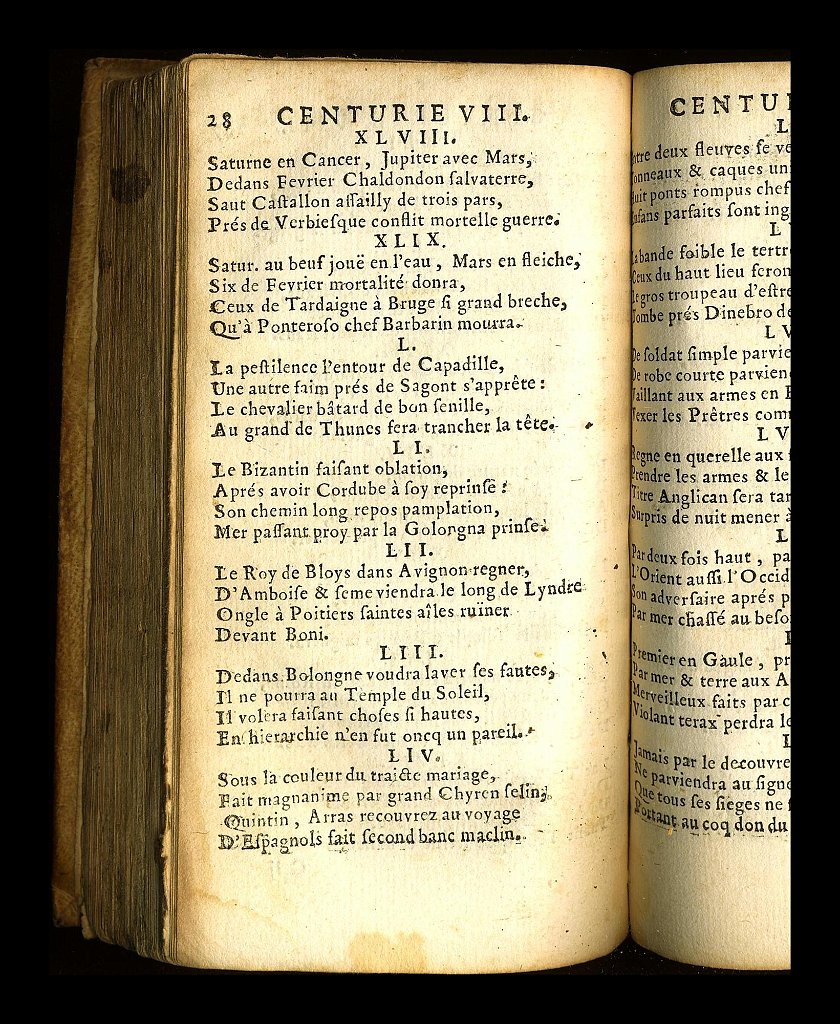 28 CENTURIE VIII.
XLVIII.
Saturne en Cancer, Jupiter avec Mars,
Dedans Fevrier Chaldondon ſalvaterre,
Saut Caſtallon aſſailly de trois pars,
Prés de Verbieſque conflit mortelle guerre.
XLIX.
Satur. au beuf jouë en l'eau, Mars en fleiche,
Six de Fevrier mortalité donra,
Ceux de Tardaigne à Bruge ſi grand breche,
Qu'à Ponteroſo chef Barbarin mourra.
L.
La peſtilence l'entour de Capadille,
Une autre faim prés de Sagont s'apprête:
Le chevalier bâtard de bon ſenille,
Au grand de Thunes fera trancher la tête.
LI.
Le Bizantin faiſant oblation,
Aprés avoir Cordube à ſoy reprinſe:
Son chemin long repos pamplation,
Mer paſſant proy par la Golongna prinſe.
LII.
Le Roy de Bloys dans Avignon regner,
D'Amboiſe & ſeme viendra le long de Lyndre
Ongle à Poitiers ſaintes aîles ruïner
Devant Boni.
LIII.
Dedans Bolongne voudra laver ſes fautes,
Il ne pourra au Temple du Soleil,
Il volera faiſant choſes ſi hautes,
En hierarchie n'en fut oncq un pareil.
LIV.
Sous la couleur du traicte mariage,
Fait magnanime par grand Chyren ſelin,
Quintin, Arras recouvrez au voyage
D'Eſpagnols fait ſecond banc maclin.
CENTU
L
deux fleuves ſe
& caques un
ponts rompus chef
parfaits ſont ing
L
bande foible le tertr
Ceux du haut lieu feron
Le gros troupeau d'eſtre
Tombe prés Dinebro de
L V
De ſoldat ſimple parvie
De robe courte parvien
Vaillant aux armes en
Vexer les Prêtres com
L V
Regne en querelle aux
Prendre les armes & le
Titre Anglican ſera tar
Surpris de nuit mener à
L
Par deux fois haut, pa
L'Orient auſſi l'Occid
Son adverſaire aprés p
Par mer chaſſé au beſo
Premier en Gaule, pr
Par mer & terre aux A
Merveilleux faits par c
Violant terax perdra le
L
Jamais par le decouvre
Ne parviendra au ſigne
Que tous ſes ſieges ne
Portant au coq don du